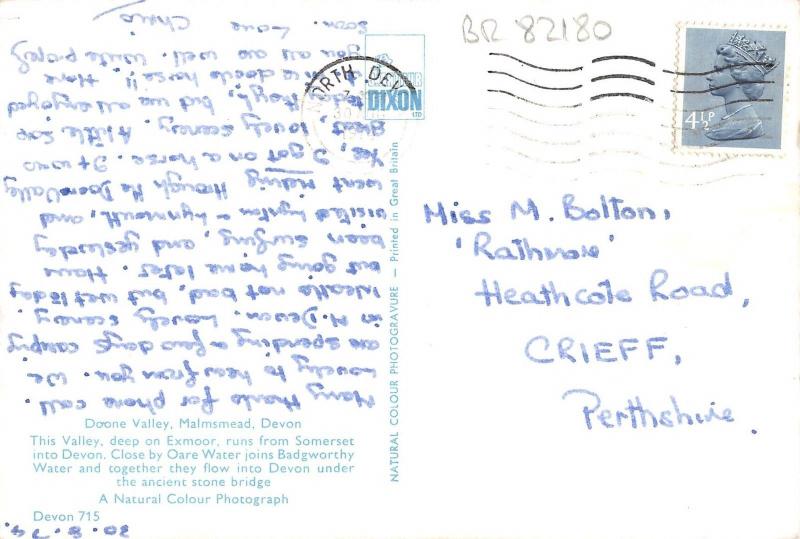 BR 82180
NORTH DEV
DIXON
LTD
4½P
30.8.74.
Many thanks for phone call.
Lovely to hear from you. We
are spending a few days camping
in N. Devon. Lovely scenery.
Weather not bad, but wet today
but going home later. Have
been surfing, and yesterday
visited Lynton & Lynmouth, and
went riding through the Doone Valley
Yes, I got on a horse. It was
great, lovely scenery. A little sop
today though, but we all enjoyed
it, me & the horse!! Hope
you all are well. Will write properly
soon. Love
Chris
Miss M. Bolton,
'Rathmore'
Heathcote Road,
CRIEFF,
Perthshire.
NATURAL COLOUR PHOTOGRAVURE — Printed in Great Britain
Doone Valley, Malmsmead, Devon
This Valley, deep on Exmoor, runs from Somerset
into Devon. Close by Oare Water joins Badgworthy
Water and together they flow into Devon under
the ancient stone bridge
A Natural Colour Photograph
Devon 715